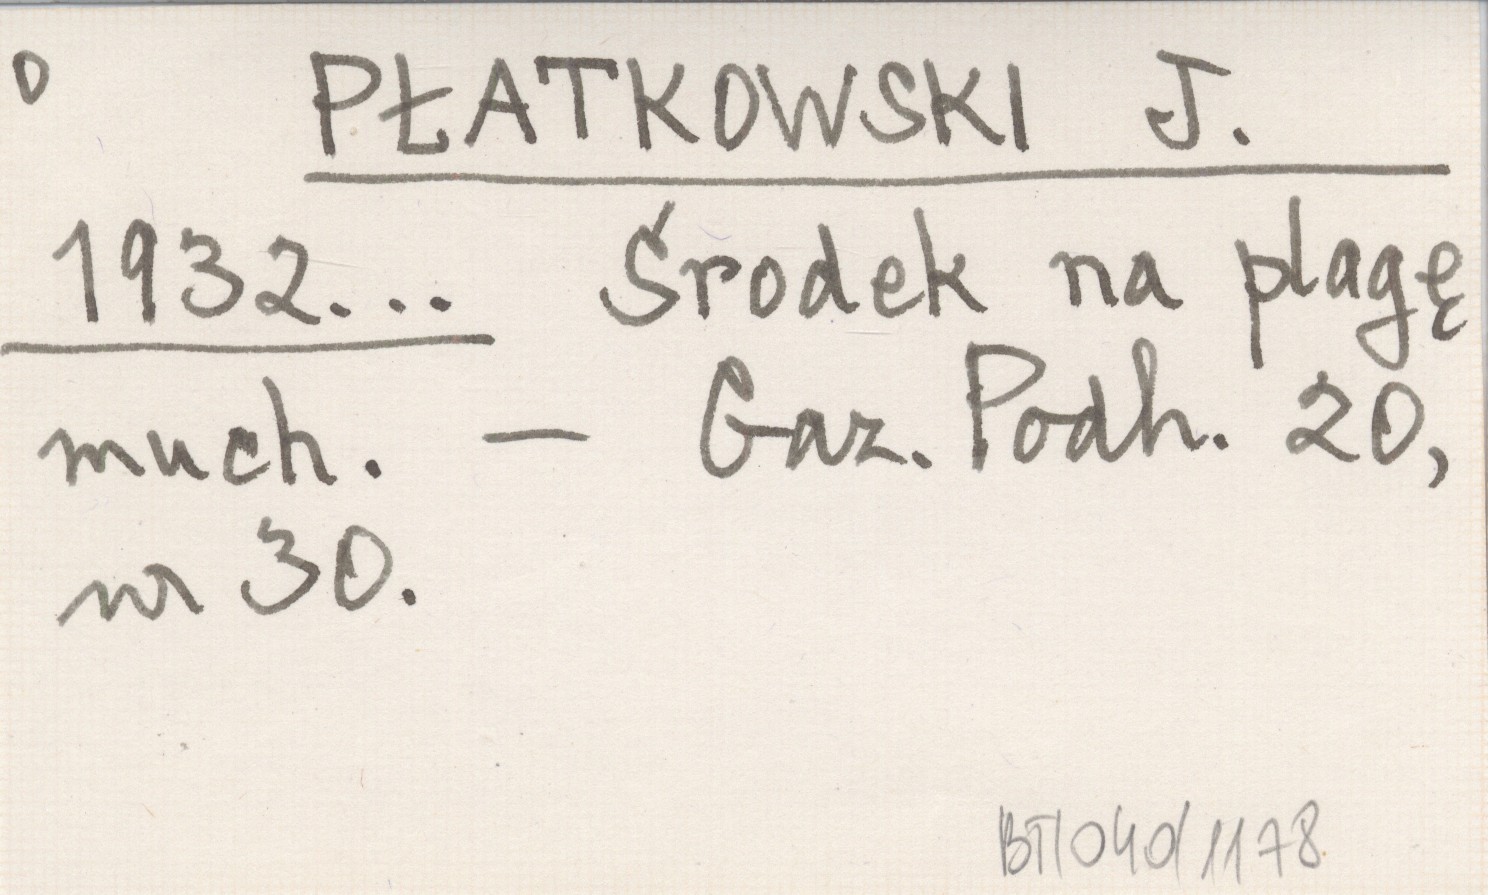 O PŁATKOWSKI J.
1932... Środek na plagę
much. — Gaz. Podh. 20,
nr 30.
BT/040/1178